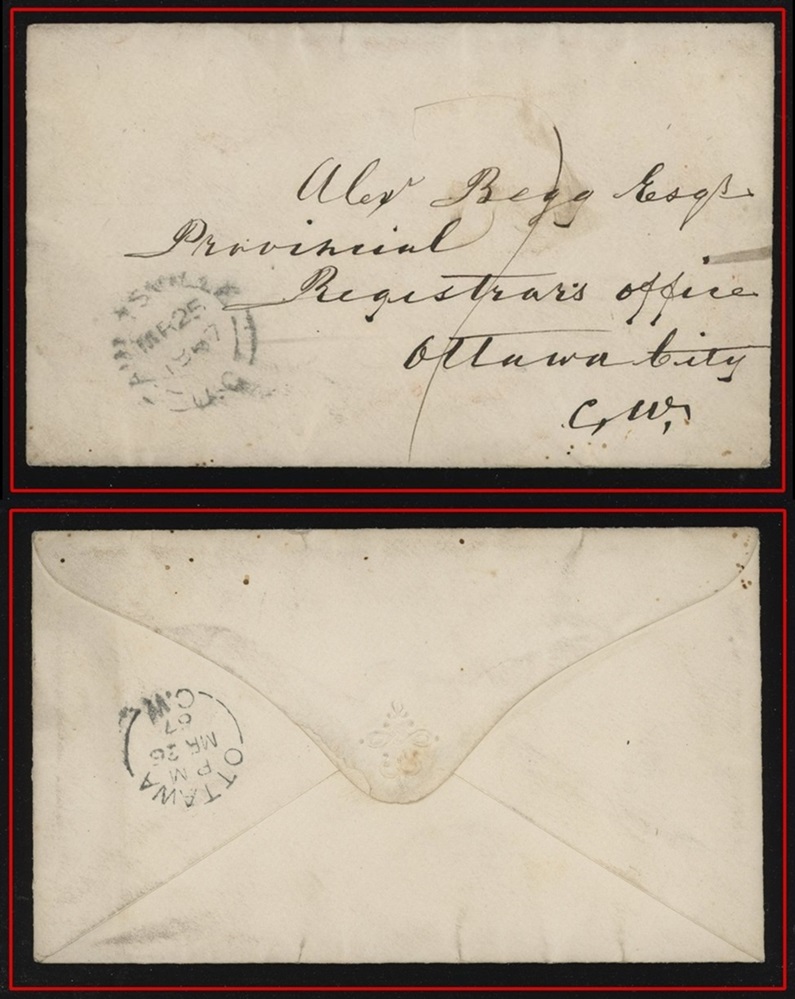 Alexr Begg Esqr
Provincial
Registrar's office
Ottawa City
C, W,
7
MR 25
U.C
OTTAWA
P M
MR 26
67
C.W